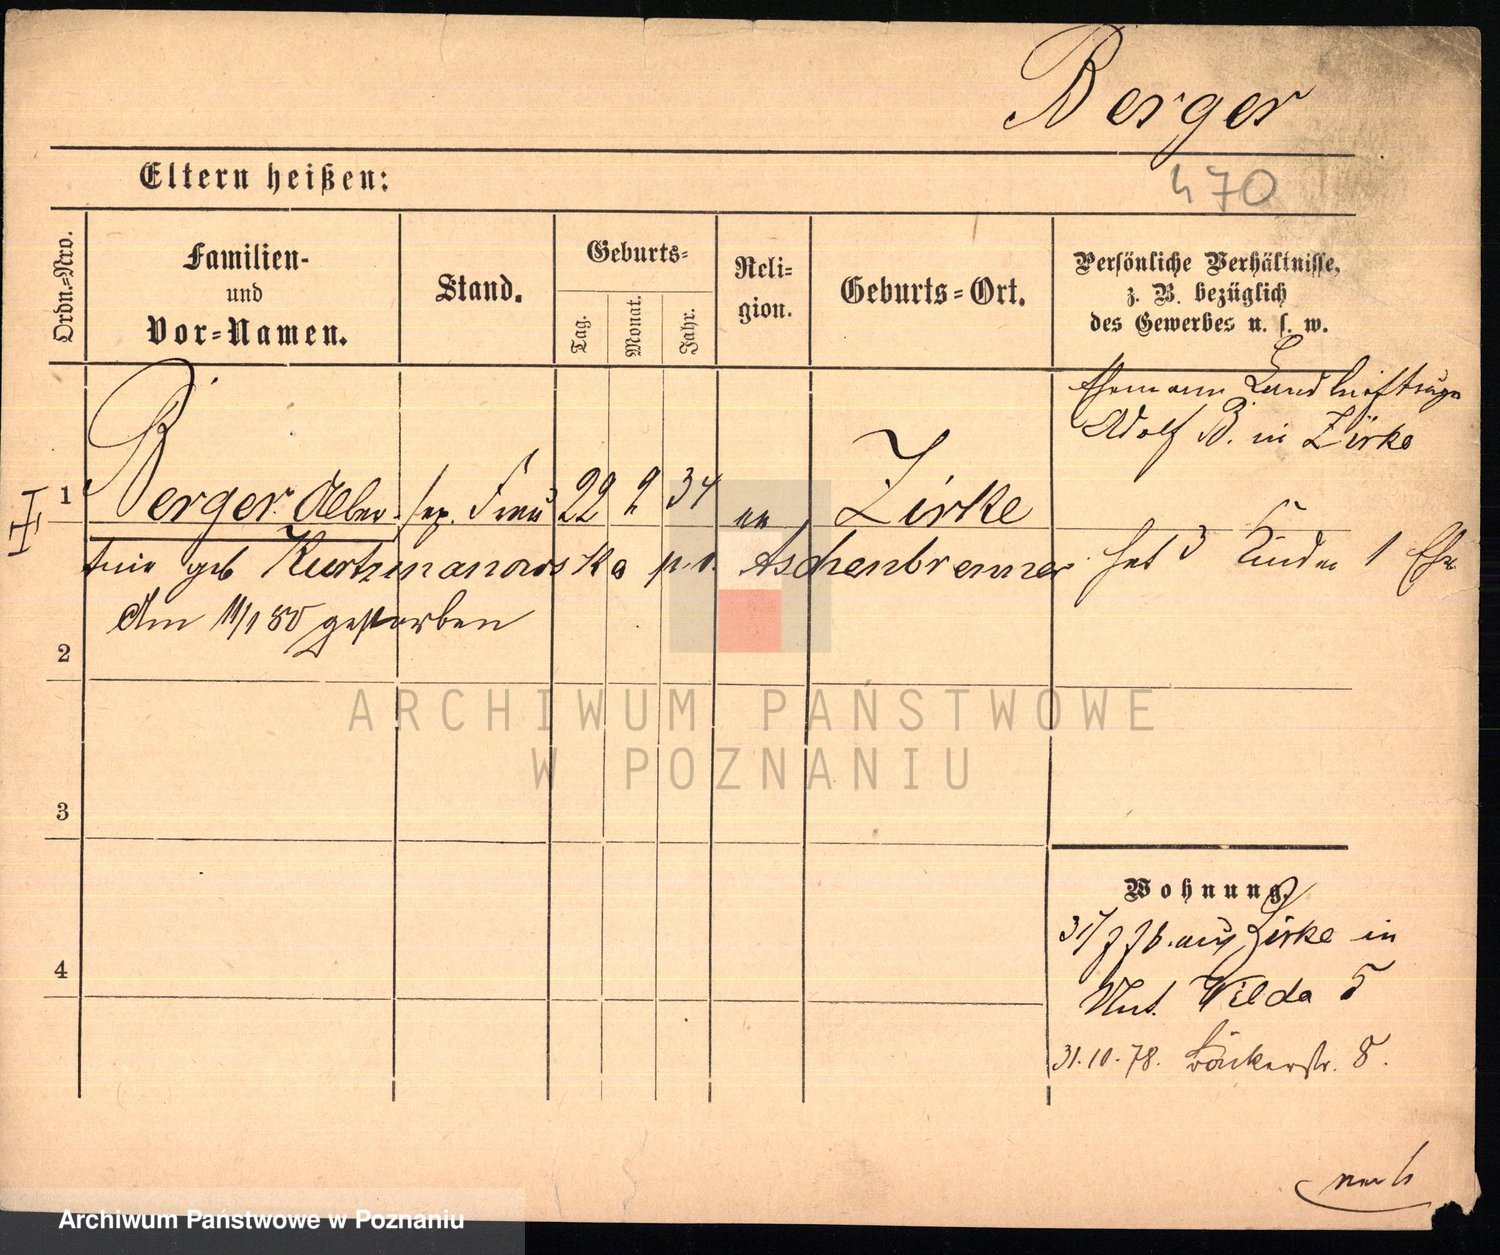 Berger
470
Eltern heißen:
Ordn.-Nro.
Familien-
und
Vor-Namen.
Stand.
Geburts-
Tag.
Monat.
Jahr.
Reli-
gion.
Geburts-Ort.
Persönliche Verhältnisse,
z. B. bezüglich
des Gewerbes u. s. w.
Ehemann
Adolf B. in Zirke
1
Berger Alber- sep. Frau 22 2 34 Zirke
tine geb Kurtzmanowska Aschenbrenner hat 3 Kinder 1 Ehe
Am 11/1 80 gestorben
2
3
4
Wohnung.
aus Zirke in
Unt. Wilda 5
31.10.78. Bäckerstr. 8.
ARCHIWUM PAŃSTWOWE
W POZNANIU
Archiwum Państwowe w Poznaniu